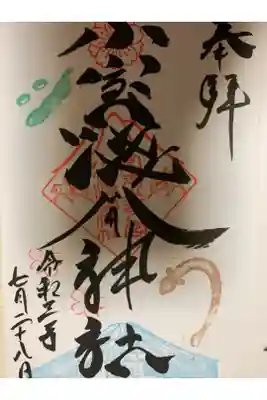 奉拝
小室浅間神社
令和三年
七月二十八日